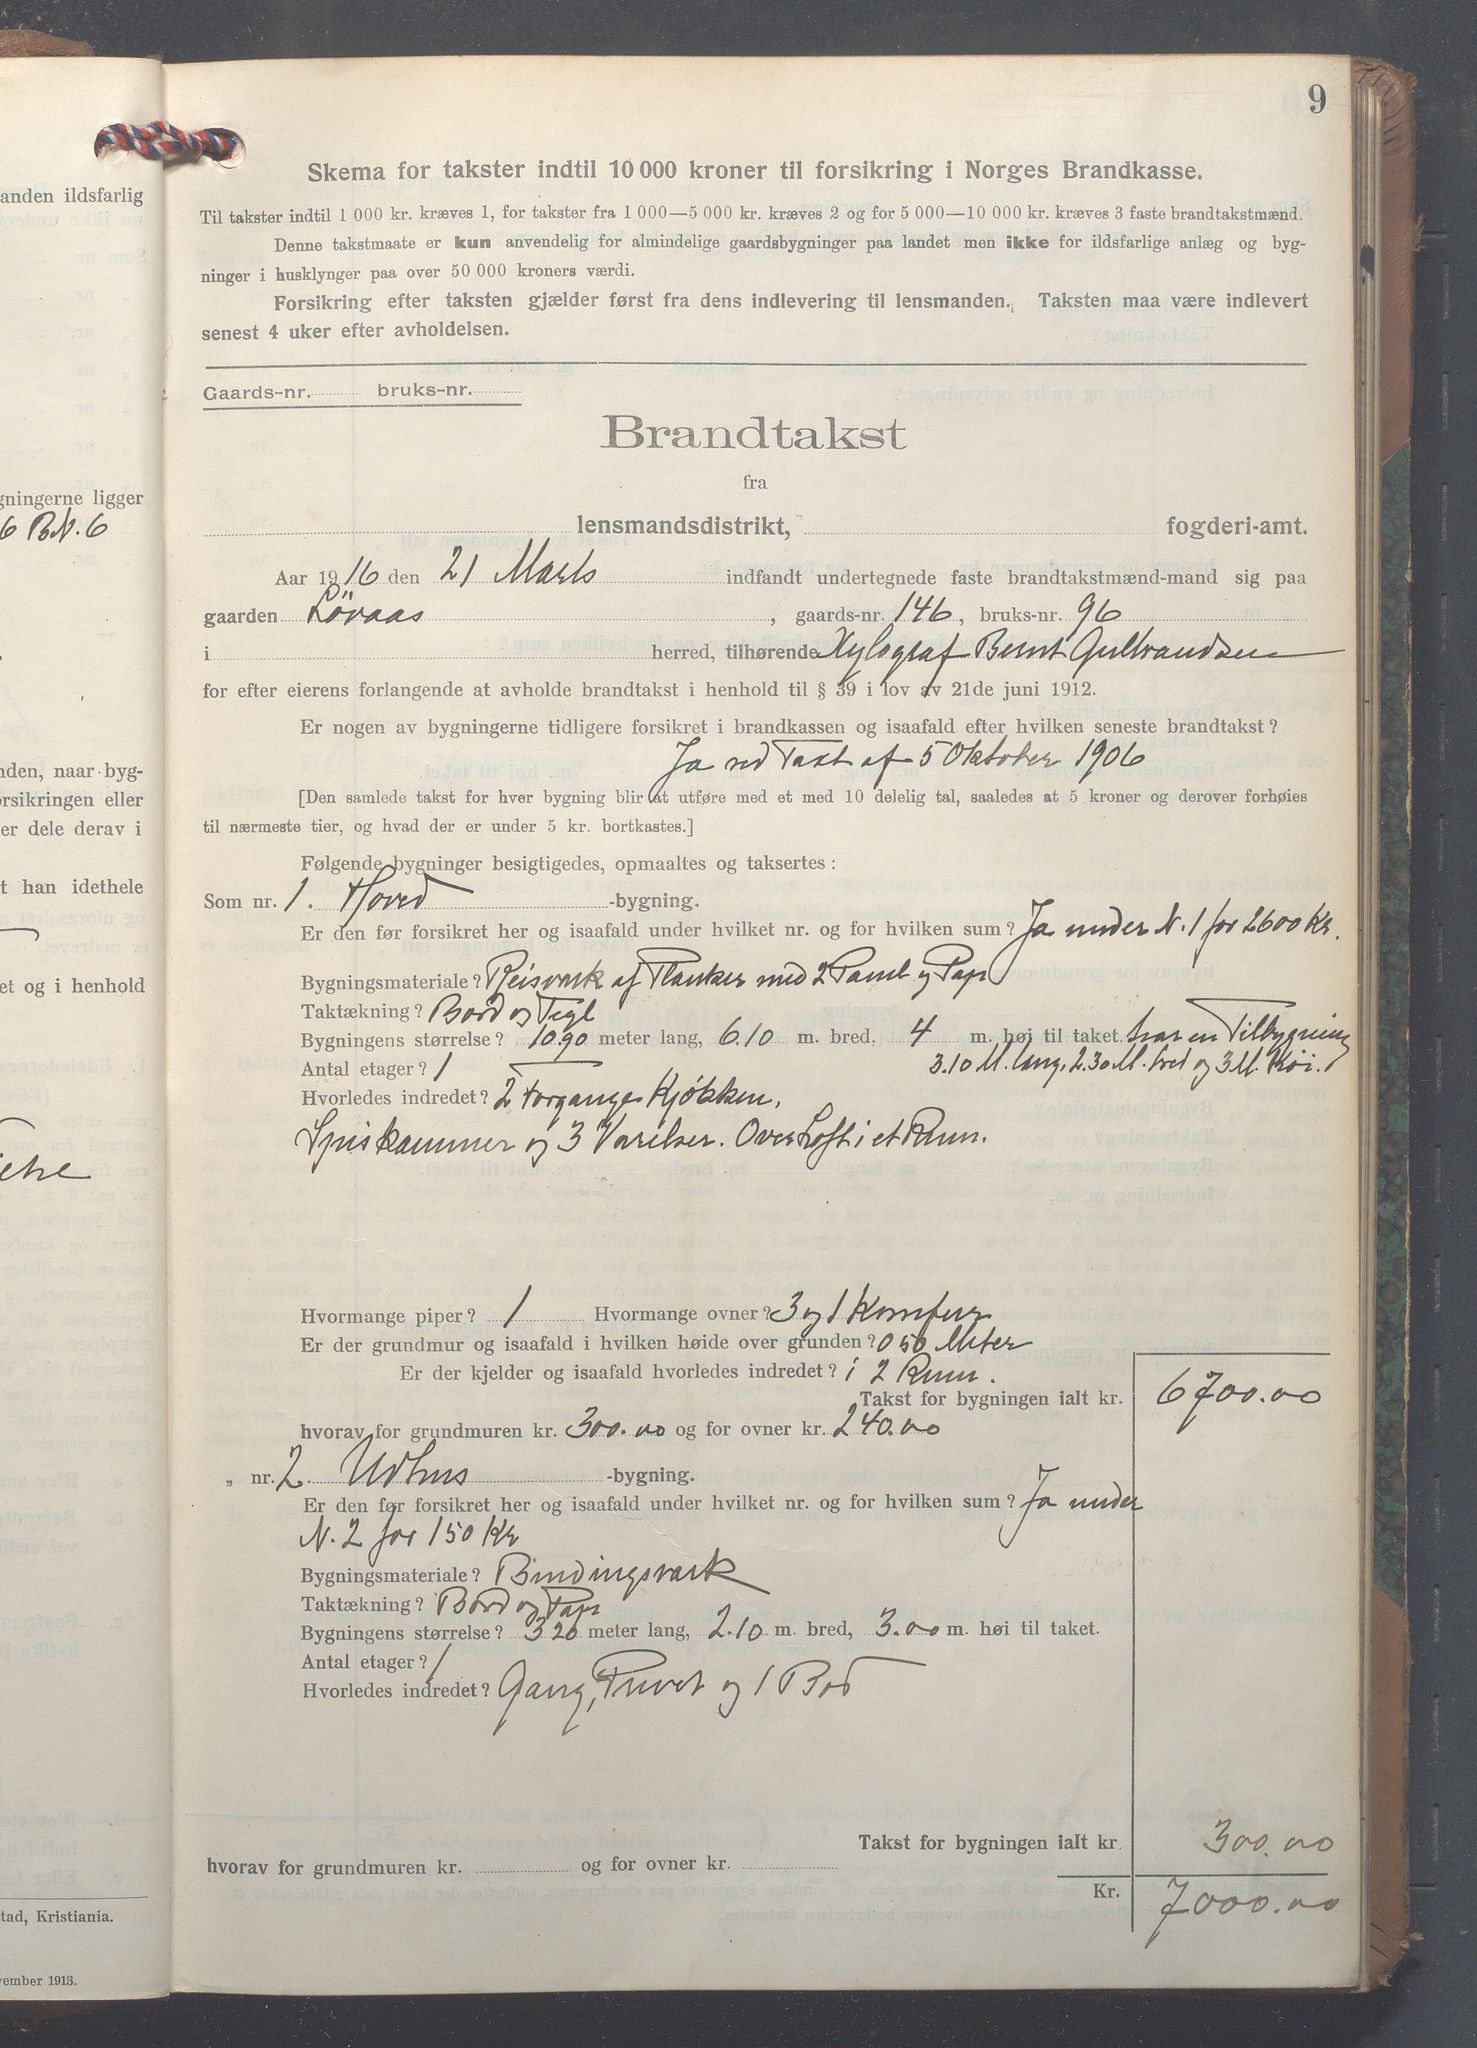 anden ildsfarlig
gningerne ligger
6 B.N. 6
nden, naar byg-
orsikringen eller
er dele derav i
t han idethele
et og i henhold
tad, Kristiania.
vember 1913.
9
Skema for takster indtil 10 000 kroner til forsikring i Norges Brandkasse.
Til takster indtil 1 000 kr. kræves 1, for takster fra 1 000—5 000 kr. kræves 2 og for 5 000—10 000 kr. kræves 3 faste brandtakstmænd.
Denne takstmaate er kun anvendelig for almindelige gaardsbygninger paa landet men ikke for ildsfarlige anlæg og byg-
ninger i husklynger paa over 50 000 kroners værdi.
Forsikring efter taksten gjælder først fra dens indlevering til lensmanden. Taksten maa være indlevert
senest 4 uker efter avholdelsen.
Gaards-nr. bruks-nr.
Brandtakst
fra
lensmandsdistrikt, fogderi-amt.
Aar 1916 den 21 Marts indfandt undertegnede faste brandtakstmænd-mand sig paa
gaarden Lövaas, gaards-nr. 146, bruks-nr. 96
i herred, tilhørende Xylograf Bernt Gulbrandsen
for efter eierens forlangende at avholde brandtakst i henhold til § 39 i lov av 21de juni 1912.
Er nogen av bygningerne tidligere forsikret i brandkassen og isaafald efter hvilken seneste brandtakst?
Ja ved Taxt af 5 Oktober 1906
[Den samlede takst for hver bygning blir at utføre med et med 10 delelig tal, saaledes at 5 kroner og derover forhøies
til nærmeste tier, og hvad der er under 5 kr. bortkastes.]
Følgende bygninger besigtigedes, opmaaltes og taksertes:
Som nr. 1. Hoved -bygning.
Er den før forsikret her og isaafald under hvilket nr. og for hvilken sum? Ja under N. 1 for 2600 Kr.
Bygningsmateriale? Reisværk af Planker med 2 Panel og Pap
Taktækning? Bord og Tegl
Bygningens størrelse? 10.90 meter lang, 6.10 m. bred, 4 m. høi til taket. har en Tilbygning
3.10 M. lang, 2.30 M. bred og 3 M. Höi.
Antal etager? 1
Hvorledes indredet? 2 Forgange, Kjökken,
Spiskammer og 3 Værelser. Over Loft i et Rum.
Hvormange piper? 1 Hvormange ovner? 3 og 1 Komfur
Er der grundmur og isaafald i hvilken høide over grunden? 0 50 Meter
Er der kjelder og isaafald hvorledes indredet? i 2 Rum.
Takst for bygningen ialt kr. 6700.00
hvorav for grundmuren kr. 300.00 og for ovner kr. 240.00
„ nr. 2 Udhus -bygning.
Er den før forsikret her og isaafald under hvilket nr. og for hvilken sum? Ja under
N. 2 for 150 Kr
Bygningsmateriale? Bindingsværk
Taktækning? Bord og Pap
Bygningens størrelse? 3 20 meter lang, 2.10 m. bred, 3.00 m. høi til taket.
Antal etager? 1
Hvorledes indredet? Gang, Privet og 1 Bod
Takst for bygningen ialt kr. 300.00
hvorav for grundmuren kr. og for ovner kr.
Kr. 7000.00